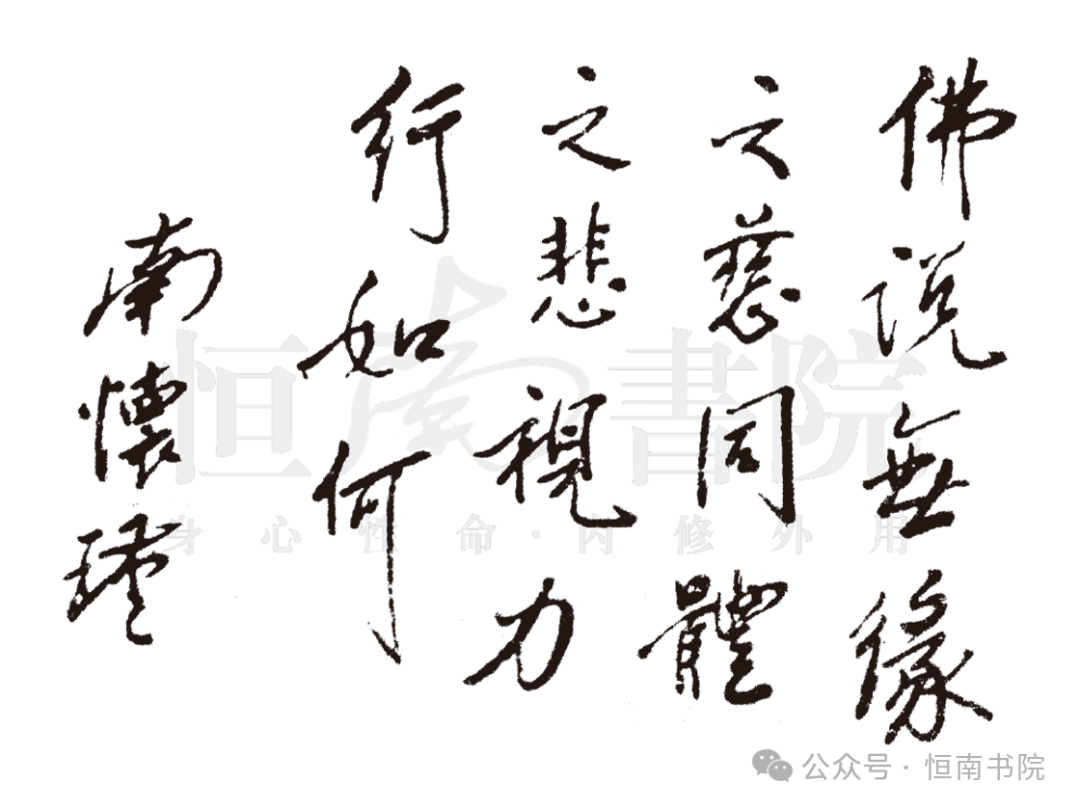 佛説無緣
之慈同體
之悲視力
行如何
南懷瑾
恒南書院
身心性命·内修外用
公众号·恒南书院